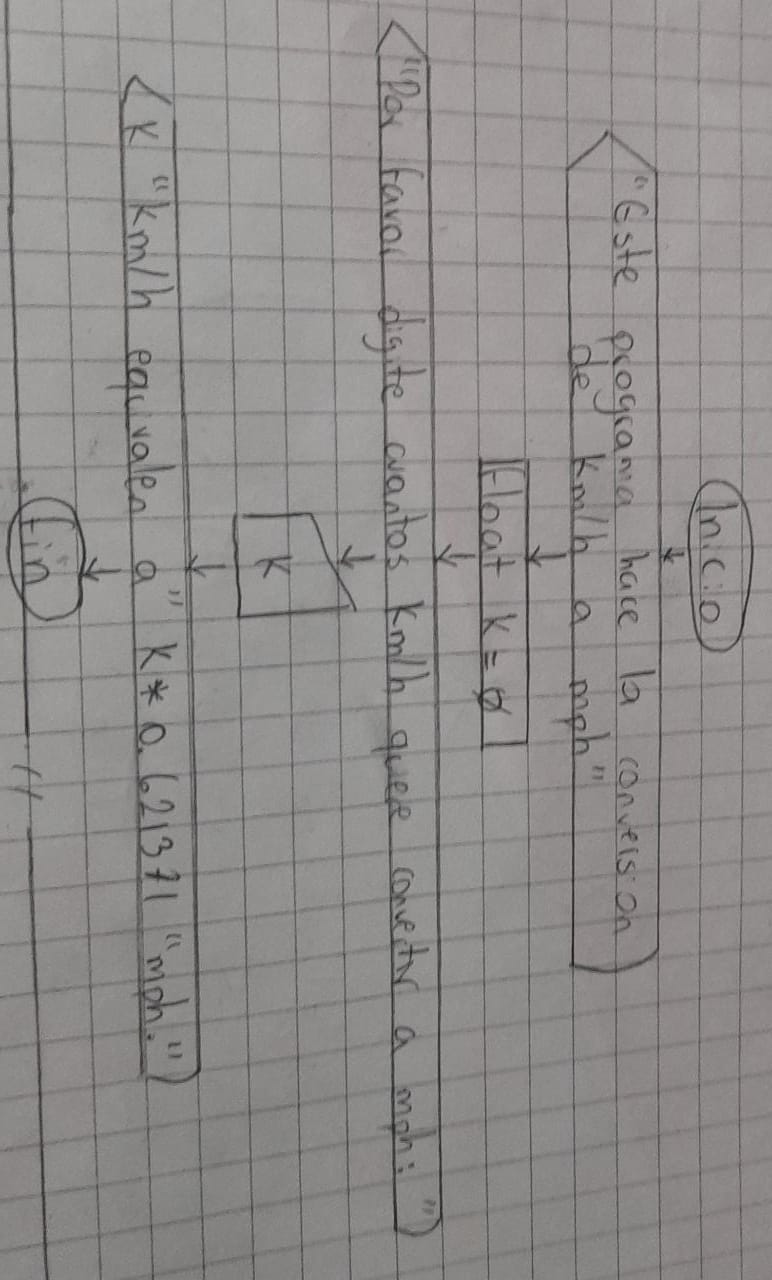 Inicio
"Este programa hace la conversion
de km/h a mph"
Float K = 0
"Por favor digite cuantos Km/h quere convertir a mph: "
K
K "km/h equivalen a" K * 0.621371 "mph."
Fin